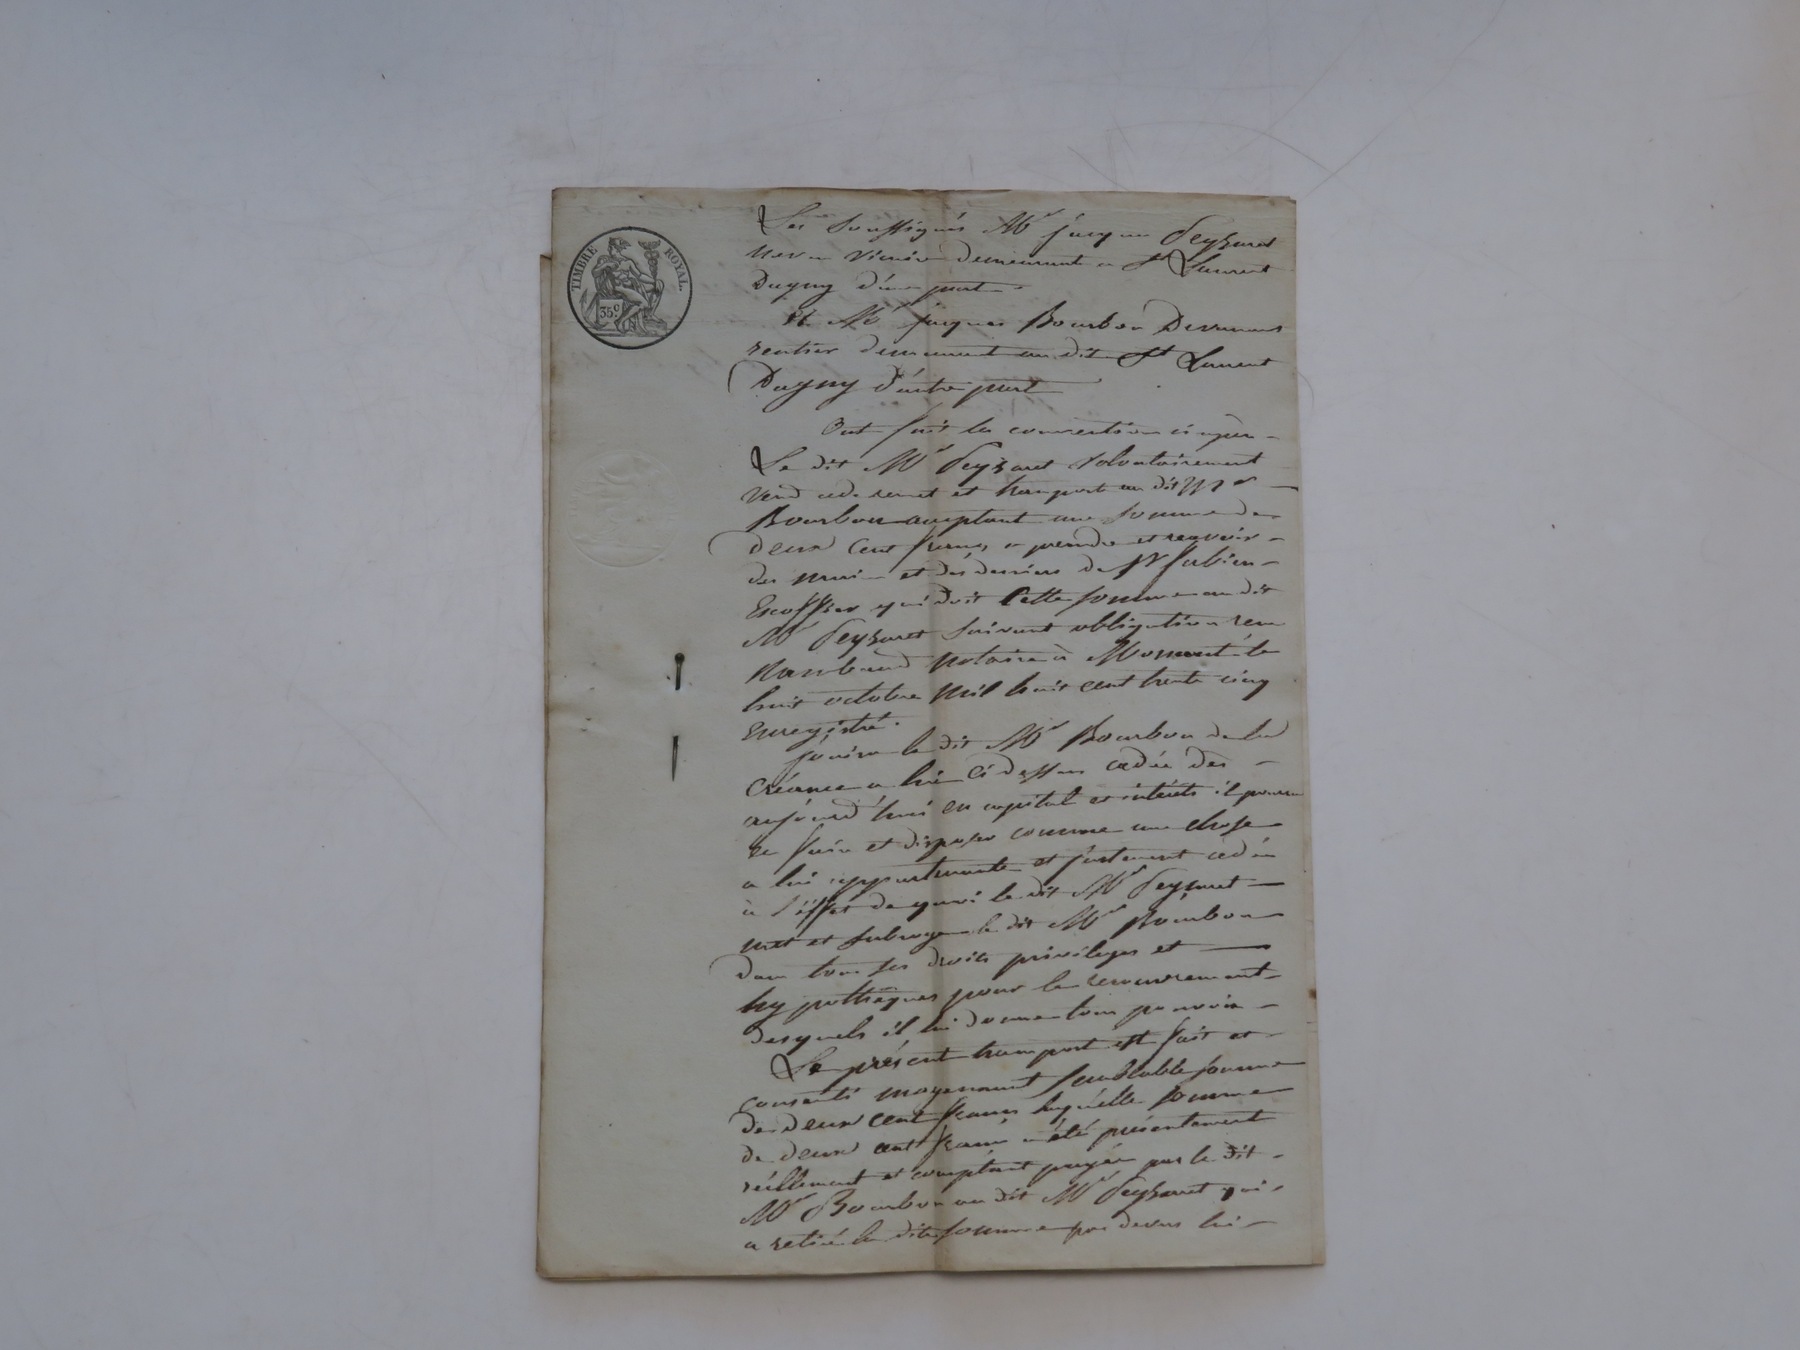 TIMBRE ROYAL.
35c
Les Soussignés Mr jacques Peyzaret
demeurant a St Laurent
Dagny d'une part
Et Mr jacques Bourbon
rentier demeurant au dit St Laurent
Dagny d'autre part
Ont fait les conventions
Le dit Mr Peyzaret volontairement
vend cede remet et transporte au dit Mr
Bourbon acceptant une somme de
deux cent francs a prendre et recevoir
des mains et des deniers de Sr fabien
Escoffier qui doit cette somme au dit
Mr Peyzaret suivant obbligation
notaire à le
huit octobre mil huit cent trente cinq
Enregistré.
jouira le dit Mr Bourbon de la
créance a lui ci dessus cedée dès
aujourd'hui en capital et intérêts il pourra
en faire et disposer comme une chose
a lui appartenante et justement cédée
à l'éffet de quoi le dit Mr Peyzaret
met et subroge le dit Mr Bourbon
dans tous ses droits privileges et
hypothèques pour le recouvrement
desquels il lui donne tous pouvoirs
Le présent transport est fait et
consenti moyennant semblable somme
de deux cent francs laquelle somme
de deux cent francs a été présentement
réellement et comptant payée par le dit
Mr Bourbon au dit Mr Peyzaret qui
a retiré la dite somme par devers lui